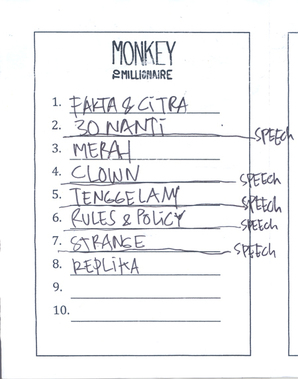 MONKEY
to MILLIONAIRE
1. FAKTA & CITRA
2. 30 NANTI SPEECH
3. MERAH
4. CLOWN SPEECH
5. TENGGELAM SPEECH
6. RULES & POLICY SPEECH
7. STRANGE SPEECH
8. REPLIKA
9.
10.